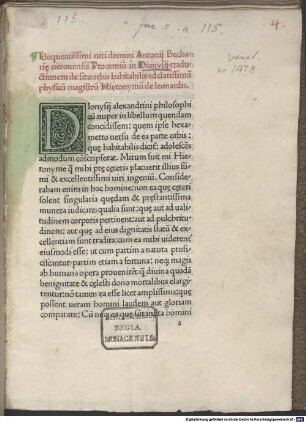 115.
4.
a. 115.
venet.
ao 1478
Eloquentissimi uiri domini Antonij Becha-
rię ueronensis Proemiũ in Dionysij tradu-
ctionem de situ orbis habitabilis ad clarissimũ
physicũ magistrũ Hieronymũ de leonardis.
DIonysij alexandrini philosophi
cũ nuper in libellum quendam
concidissem: quem ipse hexa-
metro uersu de ea parte orbis:
quę habitabilis dicit̃: adolescẽs
admodum cõscripserat. Mirum fuit mi Hie-
ronyme q̃ mihi prę cęteris placuerit illius sũ-
mi & excellentissimi uiri ingenii. Conside-
rabam enim in hoc homine: non ea quę cęteri
solent singularia quędam & pręstantissima
munera iudicare: qualia sunt: quę aut ad ualí-
tudinem corporis pertinent: aut ad pulchritu-
dinem: aut quę ad eius dignitatis statũ & ex-
cellentiam sunt tradita: cum ea mihi uiderent̃
eiusmodi esse: ut cum partim a natura profi-
ciscant̃ur: partim etiam a fortuna: neq; magis
ab humana opera proueniãt: q̃ diuina quadã
benignitate & cęlesti dono mortalibus elargi-
rentur: nõ tamen ea esse licet amplissima: quę
possent ueram homini laudem aut gloriam
comparare. Cũ neq; ea quę sint indita homini
a
REGIA
MONACENSIS.